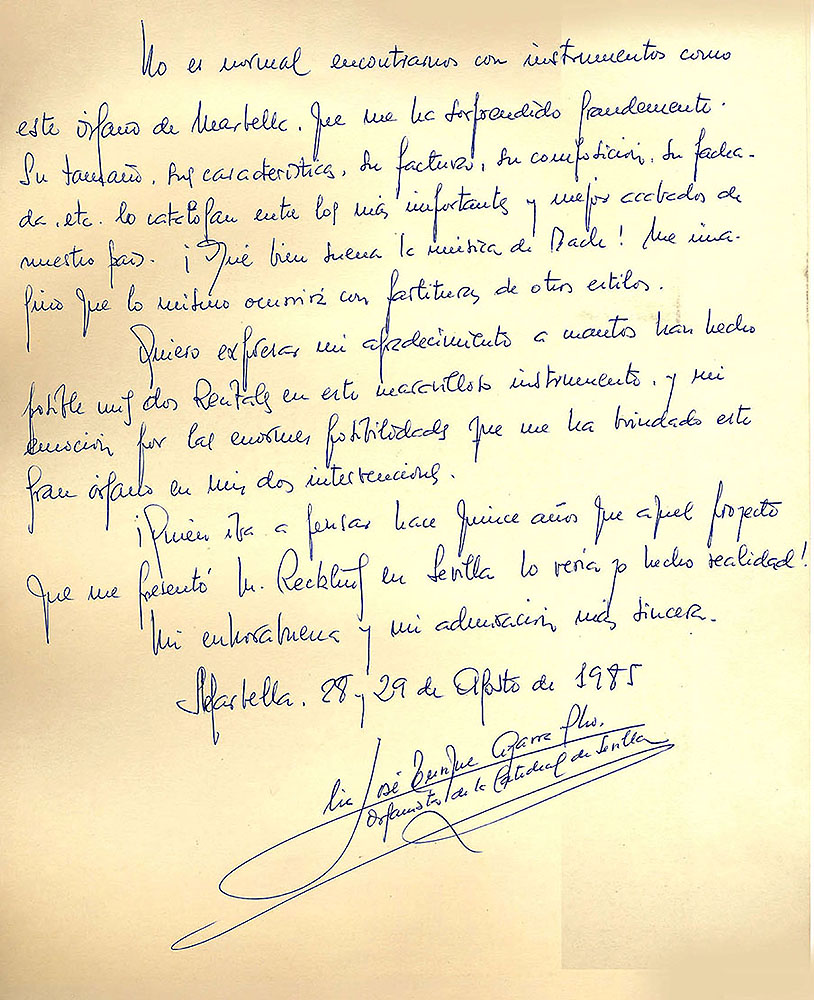 No es normal encontrarnos con instrumentos como
este órgano de Marbella. Que me ha sorprendido grandemente.
Su tamaño, sus características, su factura, su composición, su facha-
da, etc. lo catalogan entre los más importantes y mejor acabados de
nuestro país. ¡Qué bien suena la música de Bach! Me ima-
gino que lo mismo ocurrirá con partituras de otros estilos.
Quiero expresar mi agradecimiento a cuantos han hecho
posible mis dos Recitales en este maravilloso instrumento, y mi
emoción por las enormes posibilidades que me ha brindado este
gran órgano en mis dos intervenciones.
¡Quién iba a pensar hace quince años que aquel proyecto
que me presentó M. Recklling en Sevilla lo vería yo hecho realidad!
Mi enhorabuena y mi admiración más sincera.
Marbella, 28 y 29 de Agosto de 1985
José Enrique Ayarra
Organista de la Catedral de Sevilla